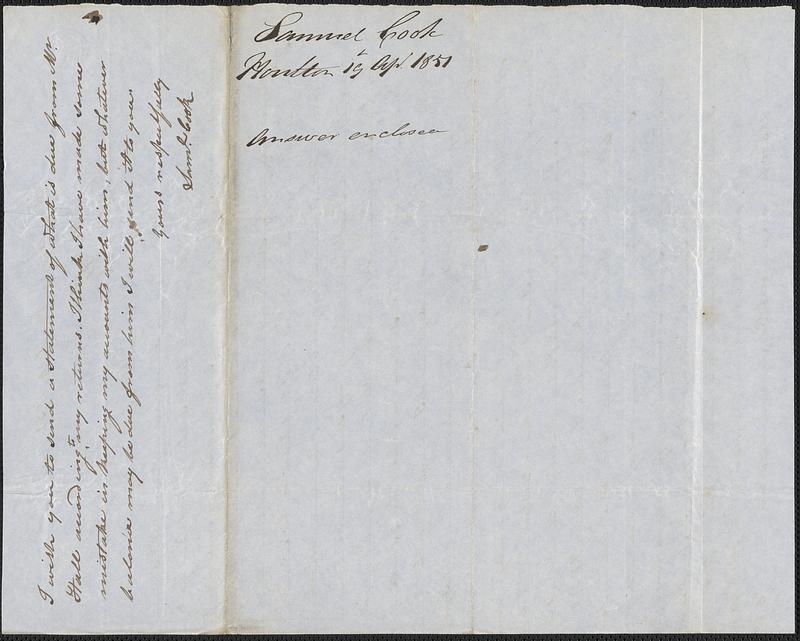 Samuel Cook
Houlton 19 Apr. 1851
Answer enclosed
I wish you to send a statement of what is due from Mr.
Hall according to my returns. I think I have made some
mistake in keeping my accounts with him, but whatever
balance may be due from him I will send it to you.
Yours respectfully
Saml. Cook